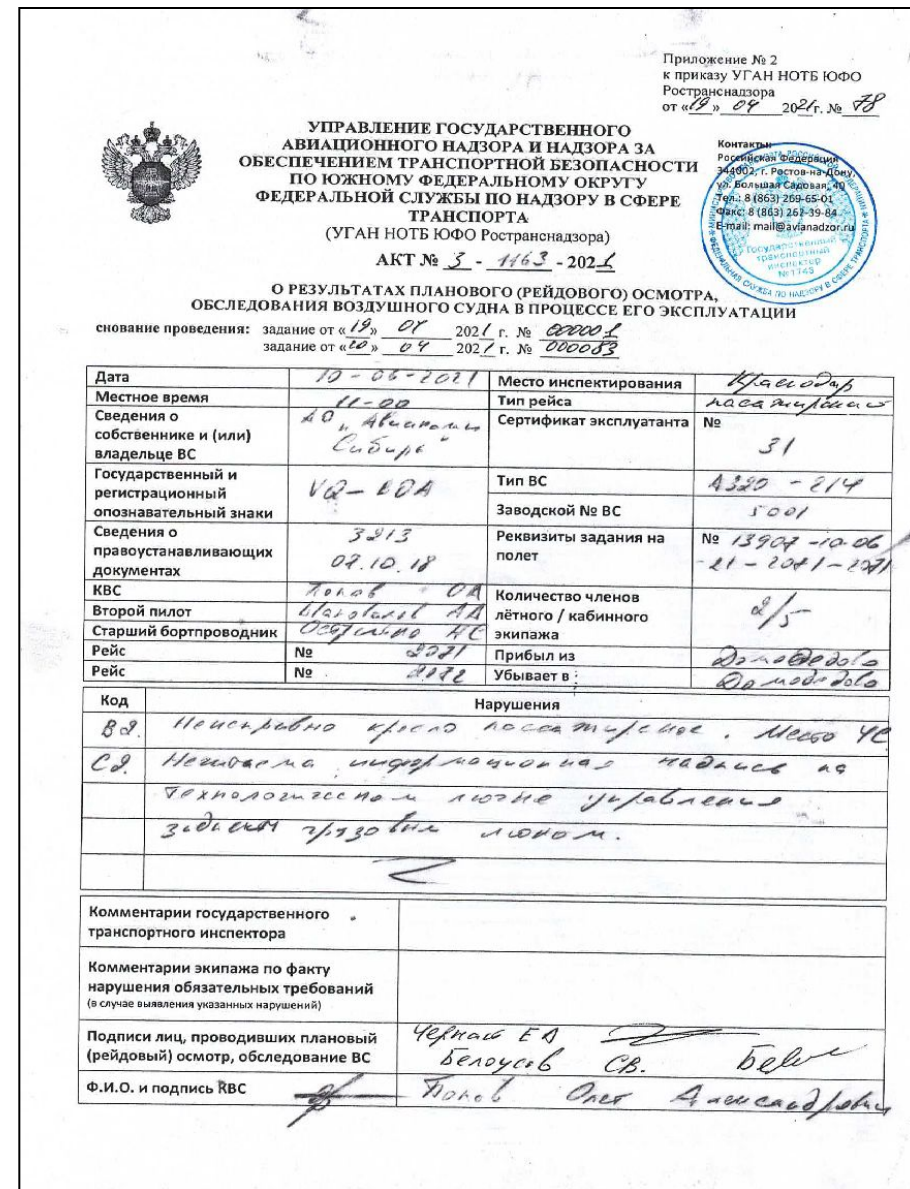 Приложение № 2
к приказу УГАН НОТБ ЮФО
Ространснадзора
от «19» 04 2021г. № 78
УПРАВЛЕНИЕ ГОСУДАРСТВЕННОГО
АВИАЦИОННОГО НАДЗОРА И НАДЗОРА ЗА
ОБЕСПЕЧЕНИЕМ ТРАНСПОРТНОЙ БЕЗОПАСНОСТИ
ПО ЮЖНОМУ ФЕДЕРАЛЬНОМУ ОКРУГУ
ФЕДЕРАЛЬНОЙ СЛУЖБЫ ПО НАДЗОРУ В СФЕРЕ
ТРАНСПОРТА
(УГАН НОТБ ЮФО Ространснадзора)
Контакты:
Российская Федерация
344002, г. Ростов-на-Дону,
ул. Большая Садовая, 40
Тел.: 8 (863) 269-65-01
Факс: 8 (863) 262-39-84
E-mail: mail@avianadzor.ru
Государственный
транспортный
инспектор
№1745
АКТ № 3 - 1163 - 2021
О РЕЗУЛЬТАТАХ ПЛАНОВОГО (РЕЙДОВОГО) ОСМОТРА,
ОБСЛЕДОВАНИЯ ВОЗДУШНОГО СУДНА В ПРОЦЕССЕ ЕГО ЭКСПЛУАТАЦИИ
снование проведения: задание от «19» 04 2021 г. № 000001
задание от «20» 04 2021 г. № 000083
Дата 10-06-2021 Место инспектирования Краснодар
Местное время 11-00 Тип рейса пассажирский
Сведения о собственнике и (или) владельце ВС АО "Авиакомп Сибирь" Сертификат эксплуатанта № 31
Государственный и регистрационный опознавательный знаки VQ- Тип ВС A320-214
Заводской № ВС 5001
Сведения о правоустанавливающих документах 3213 07.10.18 Реквизиты задания на полет № 13907-10-06
-21-2071-2071
КВС Попов ОА Количество членов лётного / кабинного экипажа 2/5
Второй пилот АА
Старший бортпроводник АС
Рейс № 2071 Прибыл из Домодедово
Рейс № 2072 Убывает в : Домодедово
Код Нарушения
B2. Неисправно кресло пассажирское. Место 4С
C2. Нечитаема информационная надпись на
технологическом лючке управления
задним грузовым люком.
Комментарии государственного
транспортного инспектора
Комментарии экипажа по факту
нарушения обязательных требований
(в случае выявления указанных нарушений)
Подписи лиц, проводивших плановый
(рейдовый) осмотр, обследование ВС
ЕА
Белоусов СВ.
Ф.И.О. и подпись КВС Попов Олег Александрович